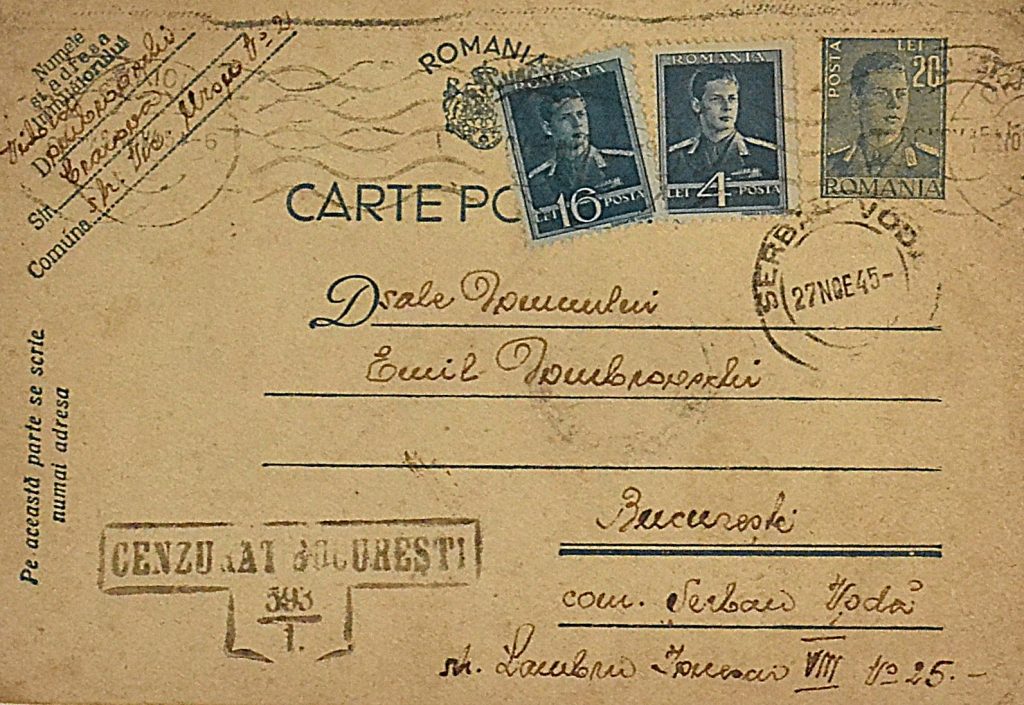 Numele
și adresa
trimițătorului
D
Craiova
Str. Vic.
Comuna
ROMANIA
CARTE PO
ROMANIA
LEI 16 POSTA
ROMANIA
LEI 4 POSTA
POSTA LEI 20
ROMANIA
SERBAN VODA
27NOE45-
Dsale Domnului
Emil Dombrowschi
București
com. Serban Vodă
str. Lambru Ionescu VIII No 25.-
Pe această parte se scrie
numai adresa
CENZURAT BUCUREȘTI
593
1.